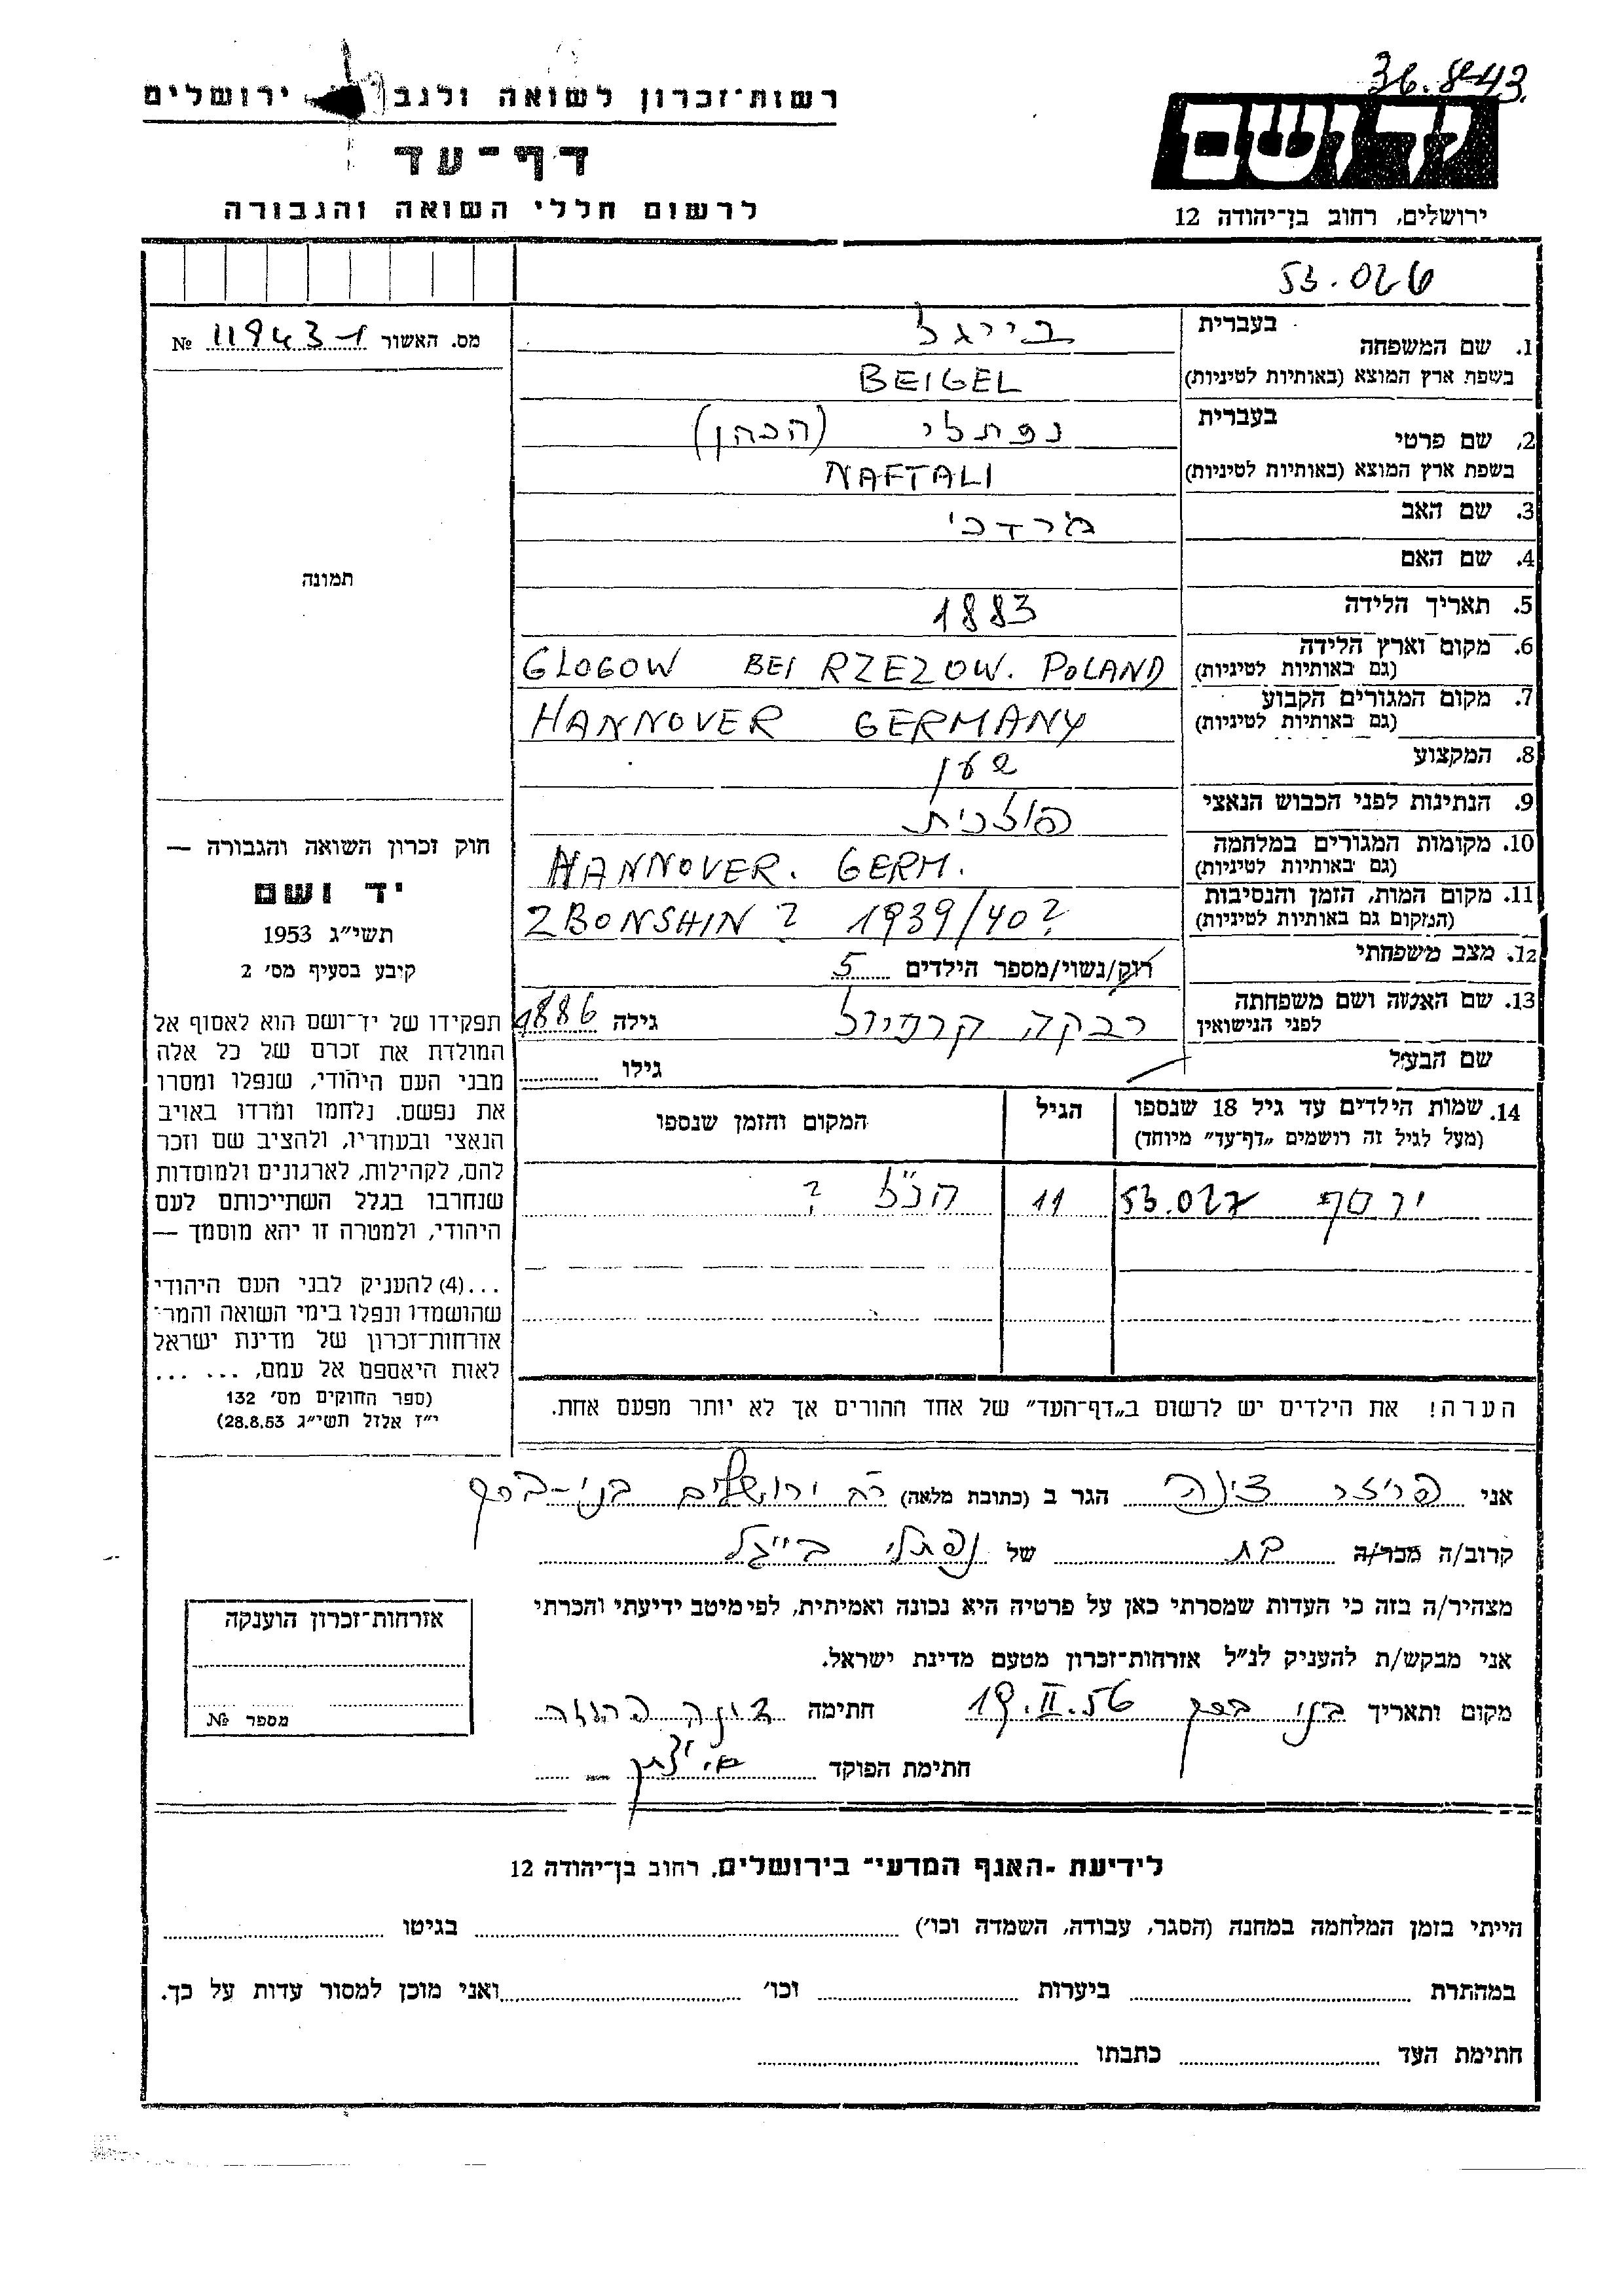 36.843
רשות־זכרון לשואה ולגב ירושלים
דף־עד
לרשום חללי השואה והגבורה
יד ושם
ירושלים, רחוב בן־יהודה 12
53.026
מס. האשור 11943-1 №
תמונה
בעברית
1. שם המשפחה בייגל
בשפת ארץ המוצא (באותיות לטיניות) BEIGEL
בעברית
2. שם פרטי נפתלי (הכהן)
בשפת ארץ המוצא (באותיות לטיניות) NAFTALI
3. שם האב מרדכי
4. שם האם
5. תאריך הלידה 1883
6. מקום וארץ הלידה
(גם באותיות לטיניות) GLOGOW BEI RZEZOW. POLAND
7. מקום המגורים הקבוע
(גם באותיות לטיניות) HANNOVER GERMANY
8. המקצוע שען
9. הנתינות לפני הכבוש הנאצי פולנית
10. מקומות המגורים במלחמה
(גם באותיות לטיניות) HANNOVER. GERM.
11. מקום המות, הזמן והנסיבות
(המקום גם באותיות לטיניות) ZBONSHIN ? 1939/40?
12. מצב משפחתי רוק/נשוי/מספר הילדים 5
13. שם האשה ושם משפחתה
לפני הנישואין רבקה קרפיול גילה 1886
שם הבעל גילו
14. שמות הילדים עד גיל 18 שנספו הגיל המקום והזמן שנספו
(מעל לגיל זה רושמים „דף־עד" מיוחד)
יוסף 53.027 11 הנ"ל ?
הערה! את הילדים יש לרשום ב„דף־העד" של אחד ההורים אך לא יותר מפעם אחת.
חוק זכרון השואה והגבורה —
יד ושם
תשי"ג 1953
קיבע בסעיף מס׳ 2
תפקידו של יד־ושם הוא לאסוף אל
המולדת את זכרם של כל אלה
מבני העם היהודי, שנפלו ומסרו
את נפשם. נלחמו ומרדו באויב
הנאצי ובעוזריו, ולהציב שם וזכר
להם, לקהילות, לארגונים ולמוסדות
שנחרבו בגלל השתייכותם לעם
היהודי, ולמטרה זו יהא מוסמך —
...(4) להעניק לבני העם היהודי
שהושמדו ונפלו בימי השואה והמר־
אזרחות־זכרון של מדינת ישראל
לאות היאספם אל עמם, ... ...
(ספר החוקים מס׳ 132
י"ז אלול תשי"ג 28.8.53)
אני צינה הגר ב (כתובת מלאה) רח ירושלים בני-ברק
קרוב/ה מכר/ה בת של נפתלי בייגל
מצהיר/ה בזה כי העדות שמסרתי כאן על פרטיה היא נכונה ואמיתית, לפי מיטב ידיעתי והכרתי
אני מבקש/ת להעניק לנ"ל אזרחות־זכרון מטעם מדינת ישראל.
מקום ותאריך בני ברק 19.II.56 חתימה
חתימת הפוקד
אזרחות־זכרון הוענקה
מספר №
לידיעת -האגף המדעי־ בירושלים, רחוב בן־יהודה 12
הייתי בזמן המלחמה במחנה (הסגר, עבודה, השמדה וכו׳) בגיטו
במחתרת ביערות וכו׳ ואני מוכן למסור עדות על כך.
חתימת העד כתבתו